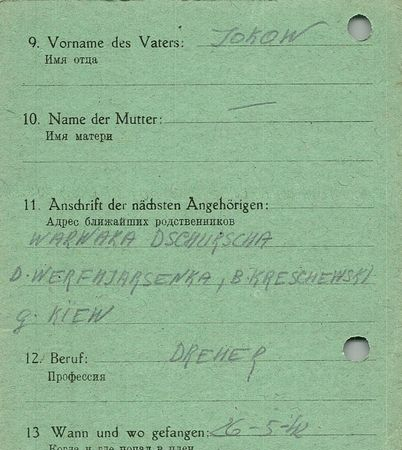 9. Vorname des Vaters: JOKOW
Имя отца
10. Name der Mutter: —
Имя матери
11. Anschrift der nächsten Angehörigen:
Адрес ближайших родственников
WARWARA DSCHURSCHA
D. WERFHJARSENKA, B. KRESCHEWSKI
g. KIEW
12. Beruf: DREHER
Профессия
13 Wann und wo gefangen: 26-5-42
Когда и где попал в плен